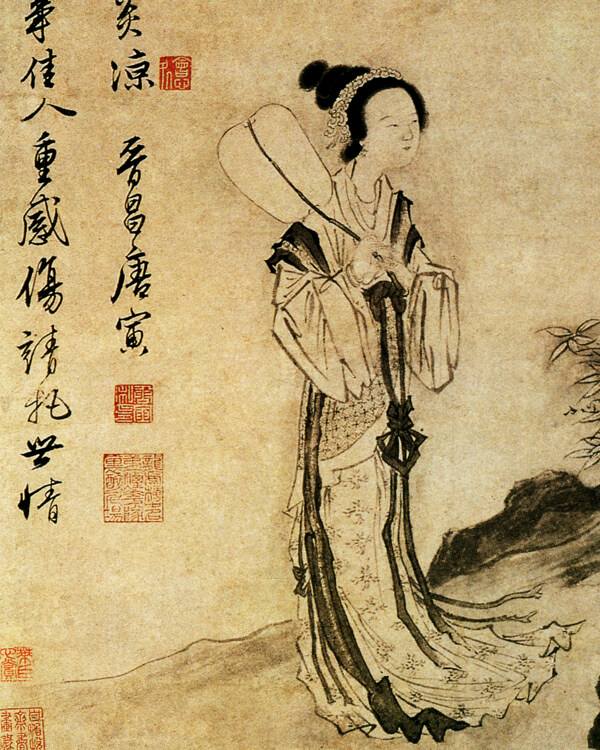 事佳人重感傷請把世情
炎涼 晉昌唐寅